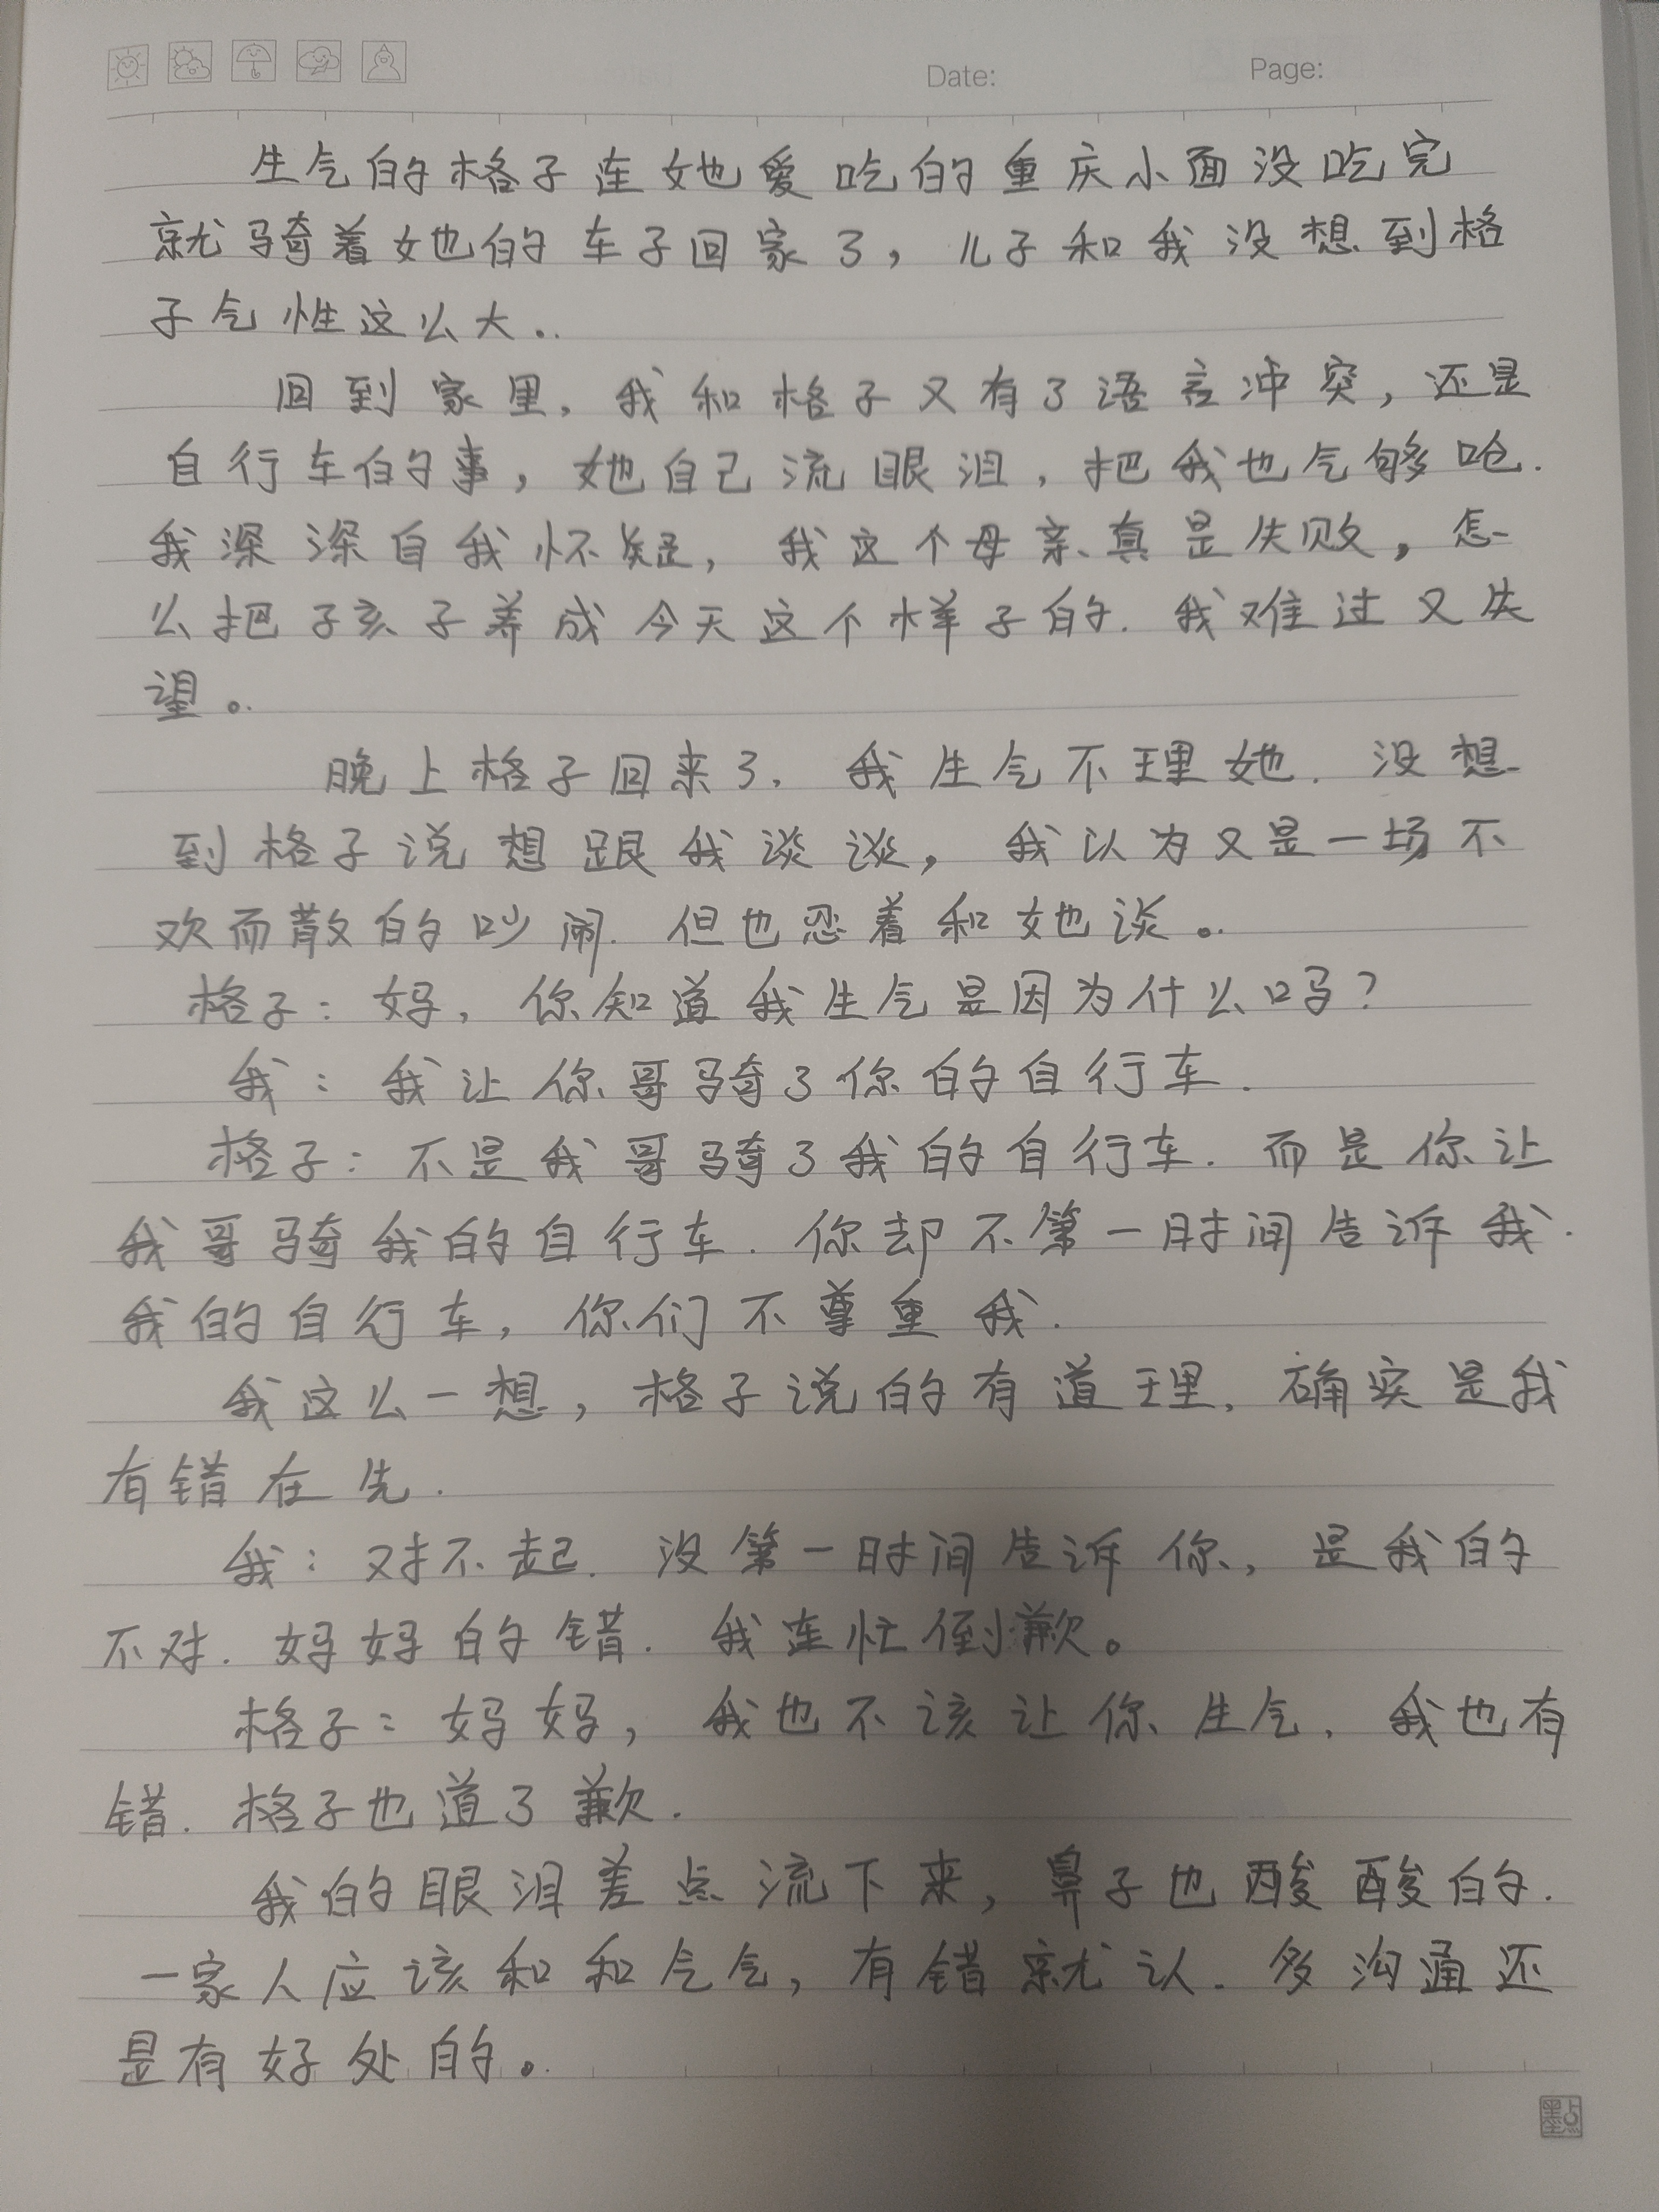 Date:
Page:
生气的格子连她爱吃的重庆小面没吃完
就骑着她的车子回家了，儿子和我没想到格
子气性这么大。
回到家里，我和格子又有了语言冲突，还是
自行车的事，她自己流眼泪，把我也气够呛.
我深深自我怀疑，我这个母亲真是失败，怎
么把孩子养成今天这个样子的. 我难过又失
望。
晚上格子回来了，我生气不理她. 没想
到格子说想跟我谈谈，我以为又是一场不
欢而散的吵闹. 但也忍着和她谈。
格子：妈，你知道我生气是因为什么吗？
我：我让你哥骑了你的自行车.
格子：不是我哥骑了我的自行车. 而是你让
我哥骑我的自行车. 你却不第一时间告诉我.
我的自行车，你们不尊重我.
我这么一想，格子说的有道理，确实是我
有错在先.
我：对不起. 没第一时间告诉你，是我的
不对. 妈妈的错. 我连忙倒歉。
格子：妈妈，我也不该让你生气，我也有
错. 格子也道了歉.
我的眼泪差点流下来，鼻子也酸酸的.
一家人应该和和气气，有错就认. 多沟通还
是有好处的。
墨点